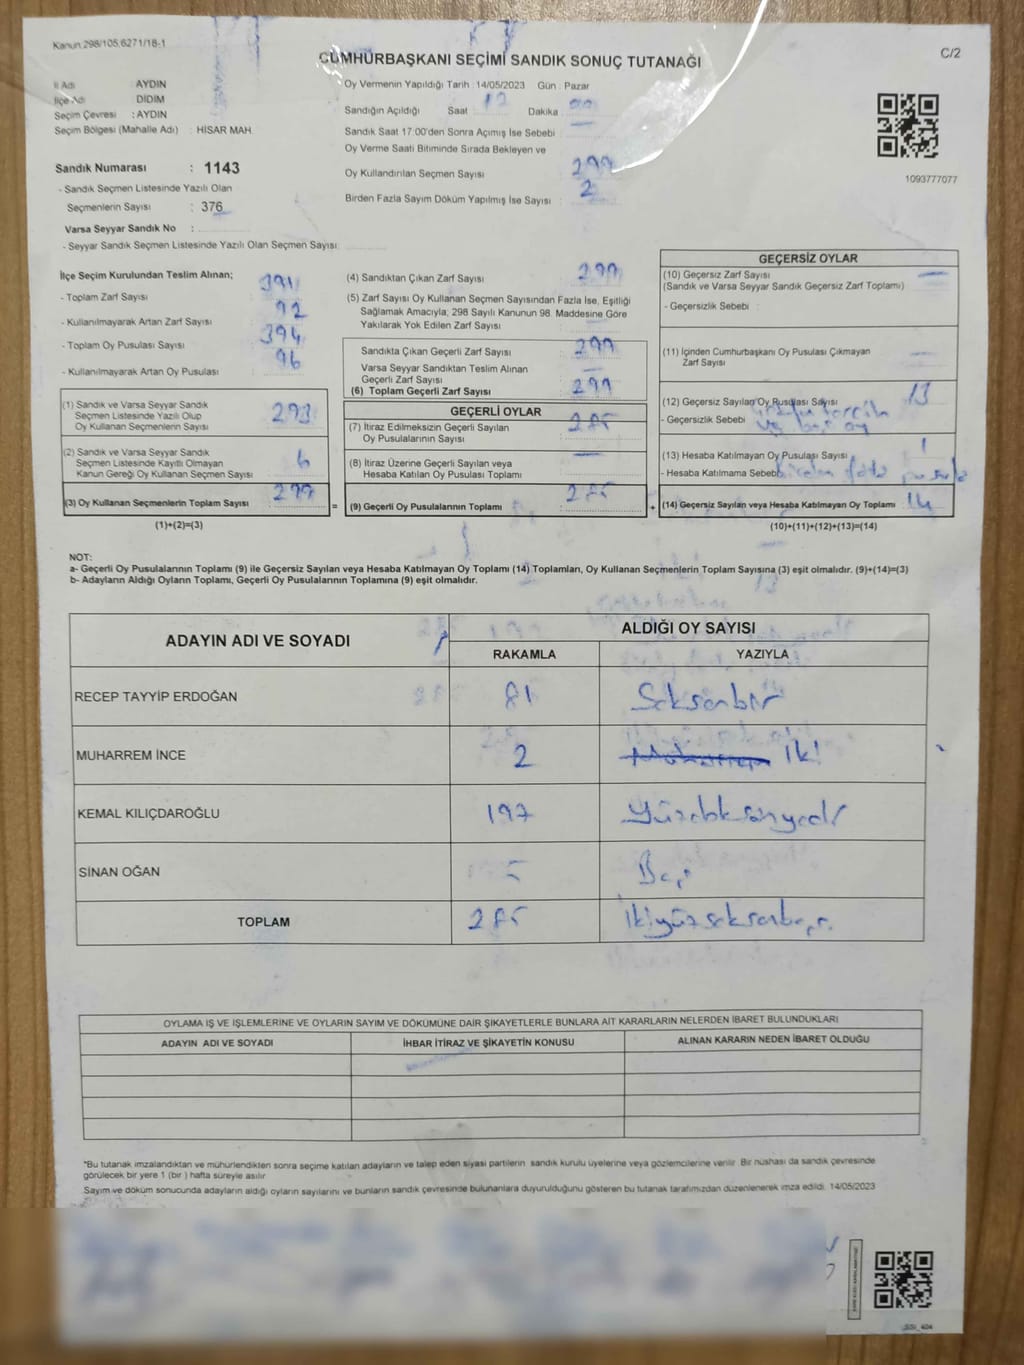 Kanun 298/105,6271/18-1
CUMHURBAŞKANI SEÇİMİ SANDIK SONUÇ TUTANAĞI
C/2
İl Adı AYDIN
İlçe Adı DİDİM
Seçim Çevresi : AYDIN
Seçim Bölgesi (Mahalle Adı) : HİSAR MAH.
Sandık Numarası : 1143
- Sandık Seçmen Listesinde Yazılı Olan
Seçmenlerin Sayısı : 376
Varsa Seyyar Sandık No :
- Seyyar Sandık Seçmen Listesinde Yazılı Olan Seçmen Sayısı
Oy Vermenin Yapıldığı Tarih : 14/05/2023 Gün : Pazar
Sandığın Açıldığı Saat Dakika
Sandık Saat 17:00'den Sonra Açımış İse Sebebi
Oy Verme Saati Bitiminde Sırada Bekleyen ve
Oy Kullandırılan Seçmen Sayısı 299
Birden Fazla Sayım Döküm Yapılmış İse Sayısı : 2
1093777077
İlçe Seçim Kurulundan Teslim Alınan;
- Toplam Zarf Sayısı 391
- Kullanılmayarak Artan Zarf Sayısı 92
- Toplam Oy Pusulası Sayısı 394
- Kullanılmayarak Artan Oy Pusulası 96
(1) Sandık ve Varsa Seyyar Sandık
Seçmen Listesinde Yazılı Olup
Oy Kullanan Seçmenlerin Sayısı 293
(2) Sandık ve Varsa Seyyar Sandık
Seçmen Listesinde Kayıtlı Olmayan
Kanun Gereği Oy Kullanan Seçmen Sayısı 6
(3) Oy Kullanan Seçmenlerin Toplam Sayısı 299
(1)+(2)=(3)
(4) Sandıktan Çıkan Zarf Sayısı 299
(5) Zarf Sayısı Oy Kullanan Seçmen Sayısından Fazla İse, Eşitliği
Sağlamak Amacıyla; 298 Sayılı Kanunun 98. Maddesine Göre
Yakılarak Yok Edilen Zarf Sayısı
Sandıkta Çıkan Geçerli Zarf Sayısı 299
Varsa Seyyar Sandıktan Teslim Alınan
Geçerli Zarf Sayısı —
(6) Toplam Geçerli Zarf Sayısı 299
GEÇERLİ OYLAR
(7) İtiraz Edilmeksizin Geçerli Sayılan
Oy Pusulalarının Sayısı 285
(8) İtiraz Üzerine Geçerli Sayılan veya
Hesaba Katılan Oy Pusulası Toplamı —
= (9) Geçerli Oy Pusulalarının Toplamı 285
GEÇERSİZ OYLAR
(10) Geçersiz Zarf Sayısı —
(Sandık ve Varsa Seyyar Sandık Geçersiz Zarf Toplamı)
- Geçersizlik Sebebi :
(11) İçinden Cumhurbaşkanı Oy Pusulası Çıkmayan
Zarf Sayısı —
(12) Geçersiz Sayılan Oy Pusulası Sayısı 13
- Geçersizlik Sebebi ve boş oy
(13) Hesaba Katılmayan Oy Pusulası Sayısı 1
- Hesaba Katılmama Sebebi birden fazla pusula
+ (14) Geçersiz Sayılan veya Hesaba Katılmayan Oy Toplamı 14
(10)+(11)+(12)+(13)=(14)
NOT:
a- Geçerli Oy Pusulalarının Toplamı (9) ile Geçersiz Sayılan veya Hesaba Katılmayan Oy Toplamı (14) Toplamları, Oy Kullanan Seçmenlerin Toplam Sayısına (3) eşit olmalıdır. (9)+(14)=(3)
b- Adayların Aldığı Oyların Toplamı, Geçerli Oy Pusulalarının Toplamına (9) eşit olmalıdır.
ADAYIN ADI VE SOYADI ALDIĞI OY SAYISI
RAKAMLA YAZIYLA
RECEP TAYYİP ERDOĞAN 81 Seksenbir
MUHARREM İNCE 2 İki
KEMAL KILIÇDAROĞLU 197 Yüzdoksanyedi
SİNAN OĞAN 5 Beş
TOPLAM 285 ikiyüzseksenbeş
OYLAMA İŞ VE İŞLEMLERİNE VE OYLARIN SAYIM VE DÖKÜMÜNE DAİR ŞİKAYETLERLE BUNLARA AİT KARARLARIN NELERDEN İBARET BULUNDUKLARI
ADAYIN ADI VE SOYADI İHBAR İTİRAZ VE ŞİKAYETİN KONUSU ALINAN KARARIN NEDEN İBARET OLDUĞU
*Bu tutanak imzalandıktan ve mühürlendikten sonra seçime katılan adayların ve talep eden siyasi partilerin sandık kurulu üyelerine veya gözlemcilerine verilir. Bir nüshası da sandık çevresinde
görülecek bir yere 1 (bir) hafta süreyle asılır
Sayım ve döküm sonucunda adayların aldığı oyların sayılarını ve bunların sandık çevresinde bulunanlara duyurulduğunu gösteren bu tutanak tarafımızdan düzenlenerek imza edildi. 14/05/2023